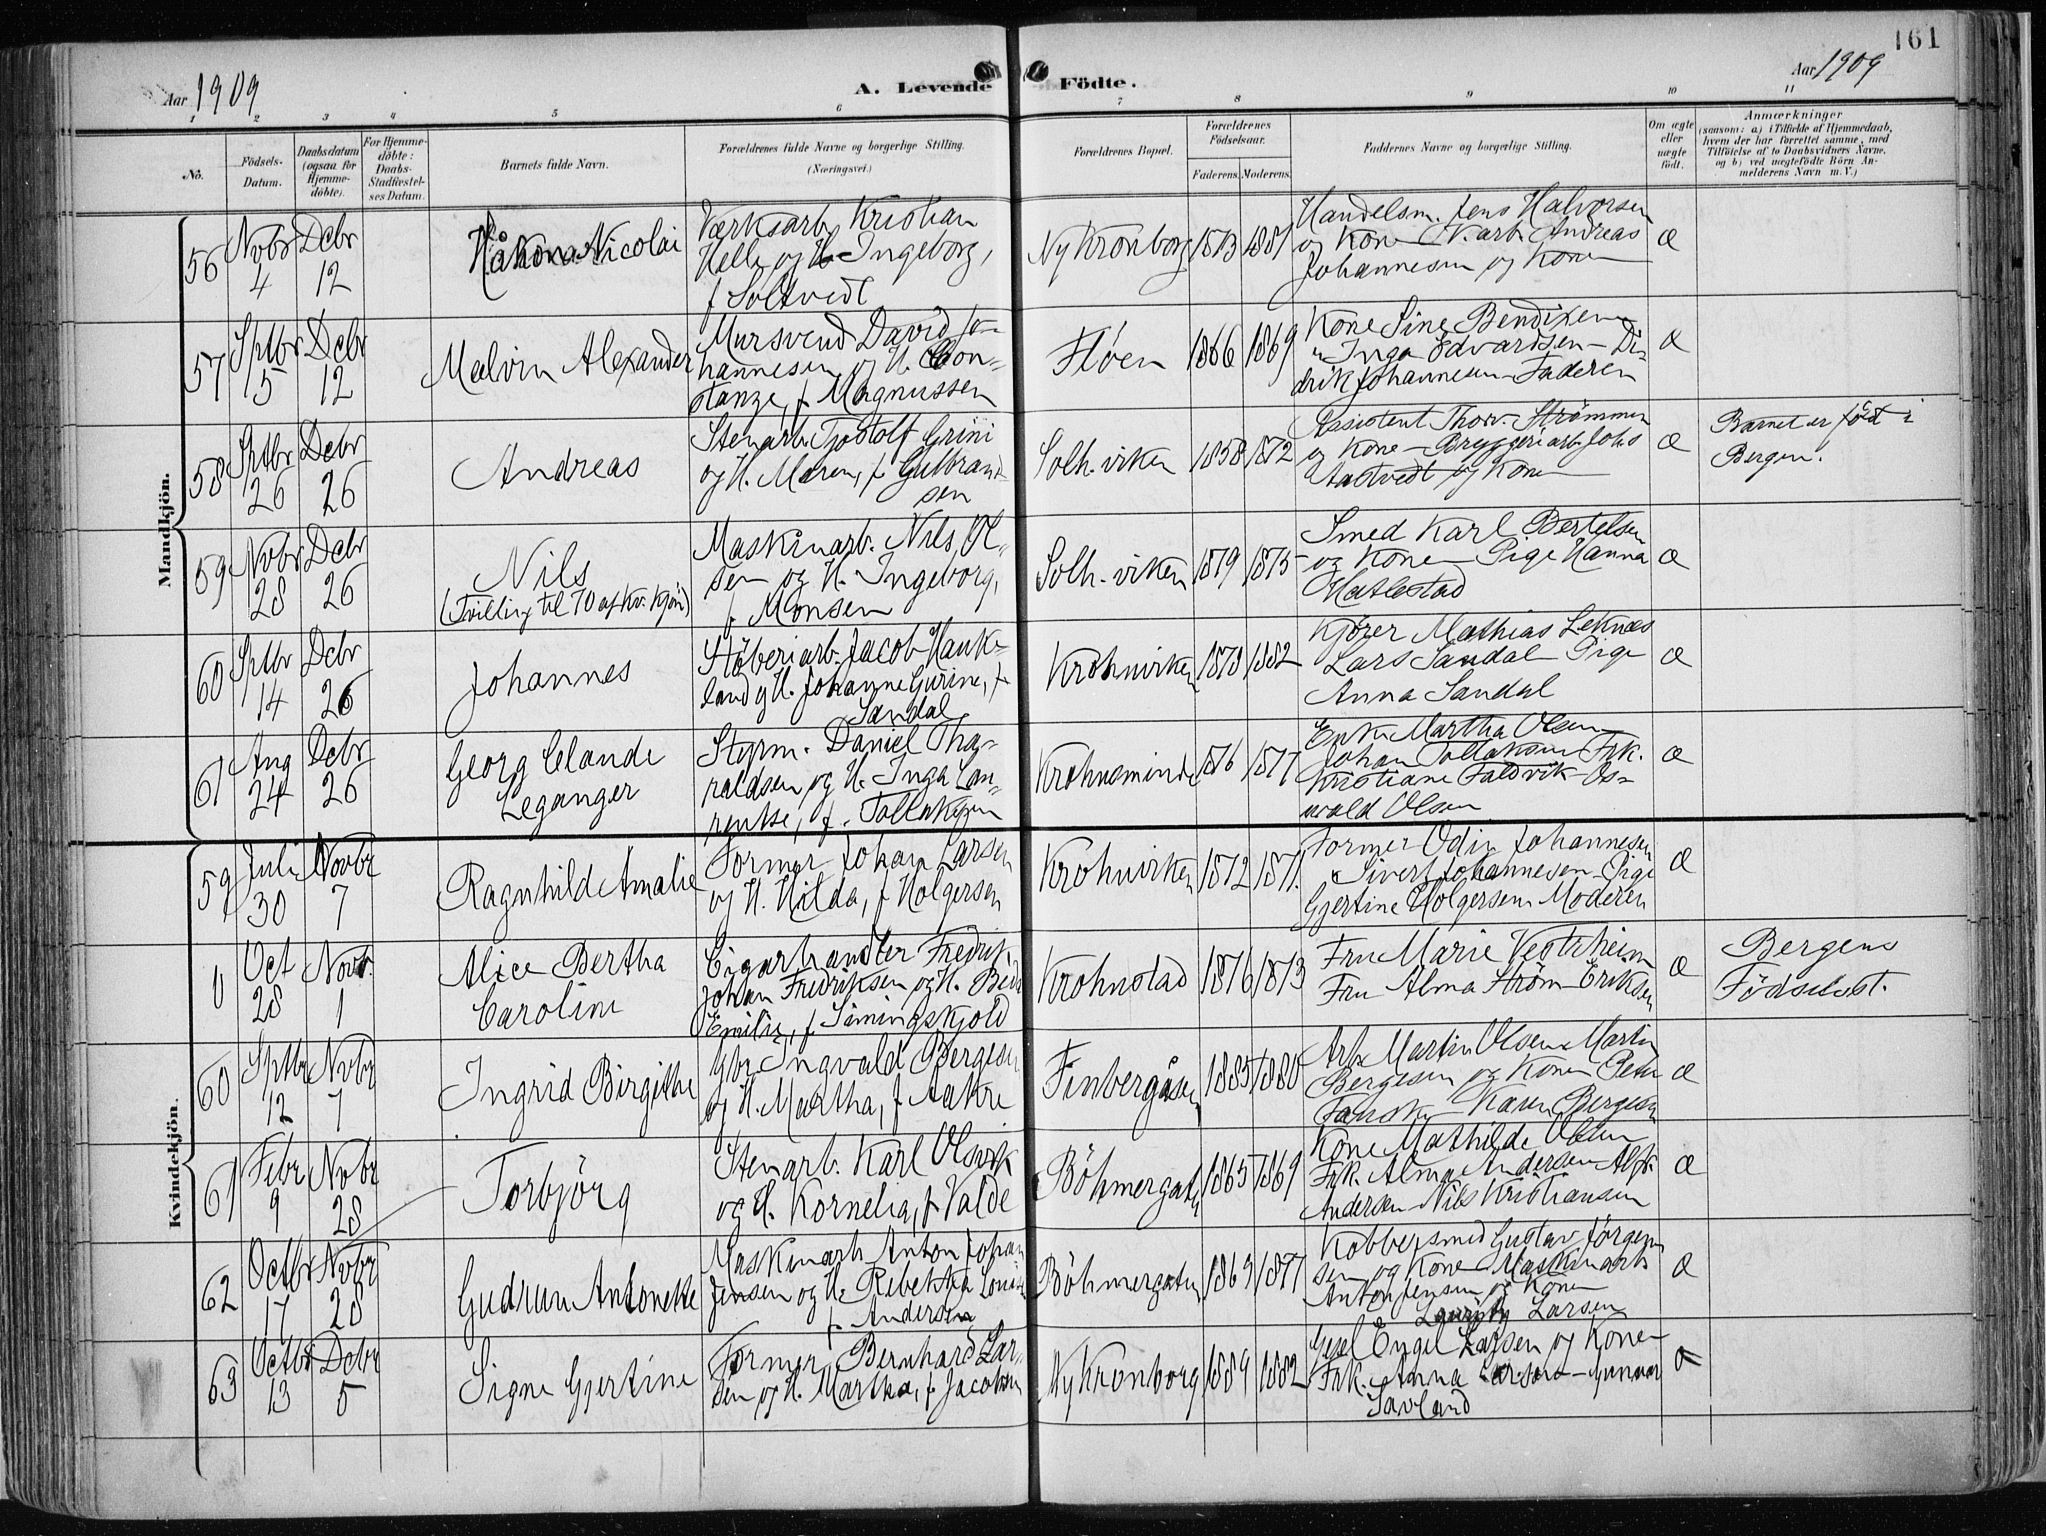 161
Aar 1909
A. Levende Födte.
Aar 1909
1 2 3 4 5 6 7 8 9 10 11
No.
Födsels-Datum.
Daabsdatum (ogsaa for Hjemme-döbte).
For Hjemme-döbte: Daabs-Stadfæstel-ses Datum.
Barnets fulde Navn.
Forældrenes fulde Navne og borgerlige Stilling. (Næringsvei.)
Forældrenes Bopæl.
Forældrenes Födselsaar.
Faderens. Moderens.
Faddernes Navne og borgerlige Stilling.
Om ægte eller uægte födt.
Anmærkninger
(saasom: a) i Tilfælde af Hjemmedaab, hvem der har forrettet samme, med Tilföielse af to Daabsvidners Navne, og b) ved uægtefödte Börn An-melderens Navn m. V.)
Mandkjön.
56 Novbr 4 Dcbr 12
Håkon Nicolai
Værksarb. Kristian
Helle og H. Ingeborg,
f Soltvedt
Ny Kronborg 1873 1881
Handelsm. Jens Halvorsen
og Kone N. arb. Andreas
Johannesen og Kone
Æ
57 Sptbr 15 Dcbr 12
Malvin Alexander
Mursvend David Jo-
hannesen og H. Con-
stanze, f Magnussen
Fløen 1866 1869
Kone Sine Bendixen
" Inga Edvardsen - Di-
drik Johannesen - Faderen
Æ
58 Sptbr 26 Dcbr 26
Andreas
Stenarb. Tjostolf Grini
og H. Maren, f Gulbrand-
sen
Solh. viken 1858 1872
Assistent Thorv. Strømmen
og Kone - Bryggeriarb. Johs
Aastvedt og Kone
Æ
Barnet er født i
Bergen.
59 Novbr 28 Dcbr 26
Nils
(Tvilling til 70 af Kv. Kjön)
Maskinarb. Nils Ol-
sen og H. Ingeborg,
f Monsen
Solh. viken 1879 1875
Smed Karl Bertelsen
og Kone Pige Hanna
Matlestad
Æ
60 Sptbr 14 Dcbr 26
Johannes
Støberiarb. Jacob Hauke-
land og H. Johanne Gurine, f
Sandal
Krohnviken 1878 1882
Kjører Mathias Leknes
Lars Sandal Pige
Anna Sandal
Æ
61 Aug 24 Dcbr 26
Georg Claude
Leganger
Styrm. Daniel Tha-
raldsen og H. Inga Lau-
rentse, f. Tollaksen
Krohnsminde 1876 1877
Enke Martha Olsen
Johan Tollaksen Frk.
Kristiane Faldvik - Os-
wald Olsen
Æ
Kvindekjön.
59 Juli 30 Novbr 7
Ragnhild Amalie
Former Johan Larsen
og H. Hilda, f Holgersen
Krohnviken 1872 1871.
Former Odin Johannesen
" Sivert Johannesen - Pige
Gjertine Holgersen Moderen
Æ
0 Oct 28 Novbr. 1
Alice Bertha
Caroline
Cigarhandler Fredrik
Johan Fredriksen og H.
Emilie, f Simingskjold
Krohnstad 1876 1873
Fru Marie Vestrheim
Fru Alma Strøm - Eriksen
Æ
Bergens
Födselsst.
60 Sptbr 12 Novbr 7
Ingrid Birgithe
Ingvald Bergesen
og H. Martha, f Aakre
Finbergåsen 1885 1880
Arb. Martin Olsen Martin
Bergesen og Kone Peter
Karen Bergesen
Æ
61 Febr 9 Novbr 28
Torbjörg
Stenarb. Karl Olsvik
og H. Kornelia, f Valde
Böhmergaten 1865 1869
Kone Mathilde Olsen
Frk. Alma Andersen Alf.
Andersen Nils Kristiansen
Æ
62 Octbr 17 Novbr 28
Gudrun Antonette
Maskinarb. Anton Johan
Jensen og H. Rebekka Louise
f Andersen
Böhmergaten 1863 1877
Kobbersmed Gustav Jörgen-
sen og Kone Maskinarb.
Anton Jensen og Kone
Lauritz Larsen
Æ
63 Octbr 13 Dcbr 5
Signe Gjertine
Former Bernhard Lar-
sen og H. Martha, f Jacobsen
Ny Kronborg 1889 1882
Engel Larsen og Kone -
Frk. Anna Larsen - Gunnar
Savland
Æ